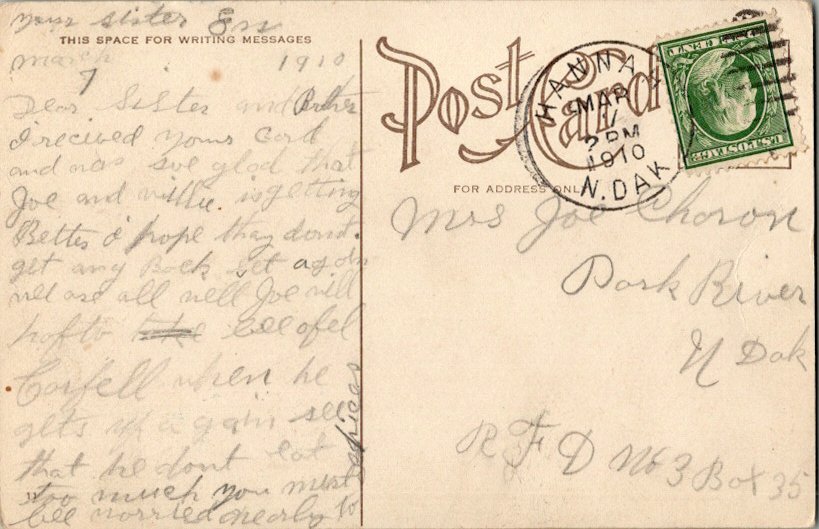 your sister Em
THIS SPACE FOR WRITING MESSAGES
March 1910
7
Dear Sister and Brother
I recived your card
and was soe glad that
Joe and Willie is getting
Better I hope thay dont
get any Back set again
wee are all well Joe will
hofto bee ofel
Carfell when he
gets up again see
that he dont eat
too much you must
bee worried nearly to
Post Card
FOR ADDRESS ONLY
HANNAH
MAR
11
2 PM
1910
N. DAK
U.S. POSTAGE
Mrs Joe Choron
Park River
N Dak
R F D No 3 Box 35